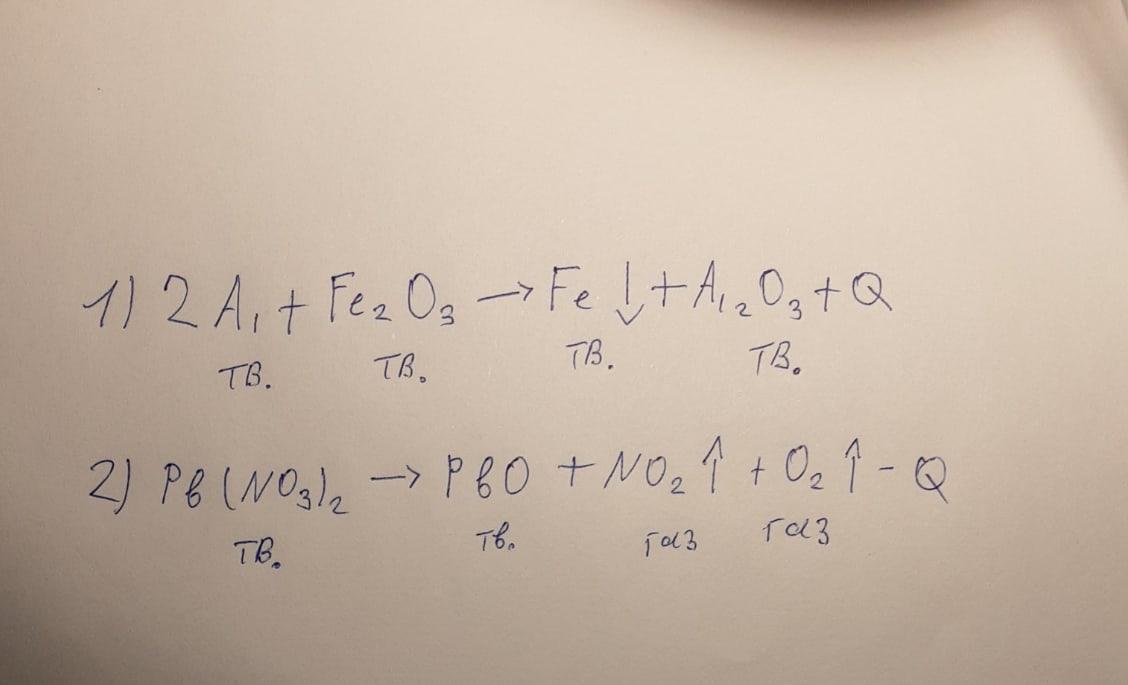 1) 2 Al + Fe₂O₃ → Fe ↓ + Al₂O₃ + Q
ТВ. ТВ. ТВ. ТВ.
2) Pb(NO₃)₂ → PbO + NO₂ ↑ + O₂ ↑ - Q
ТВ. Тв. газ газ